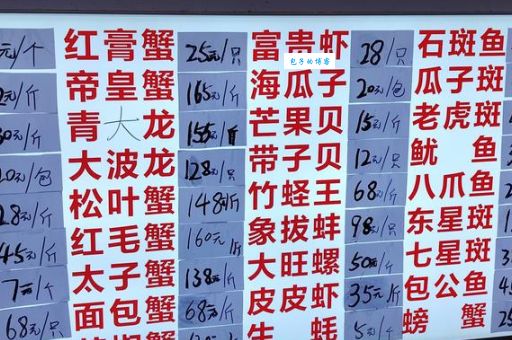 元/个 红膏蟹 25元/只 富贵虾 28/只 石斑鱼
包子的博客
元/斤 帝皇蟹 165元/斤 海瓜子 20元/包 瓜子斑
30元/斤 青大龙 155元/斤 芒果贝 15元/斤 老虎斑
20元/包 大波龙 128元/只 带子贝 12元/只 鱿鱼
28元/斤 松叶蟹 148斤 竹蛏王 68元/斤 八爪鱼
45元/斤 红毛蟹 160元/斤 象拔蚌 98元/只 东星斑
7元/个 太子蟹 138元/斤 大旺螺 50元/斤 七星斑
68元/只 面包蟹 68元/斤 皮皮虾 35元/斤 包公鱼
生蚝 5元/个 螃蟹